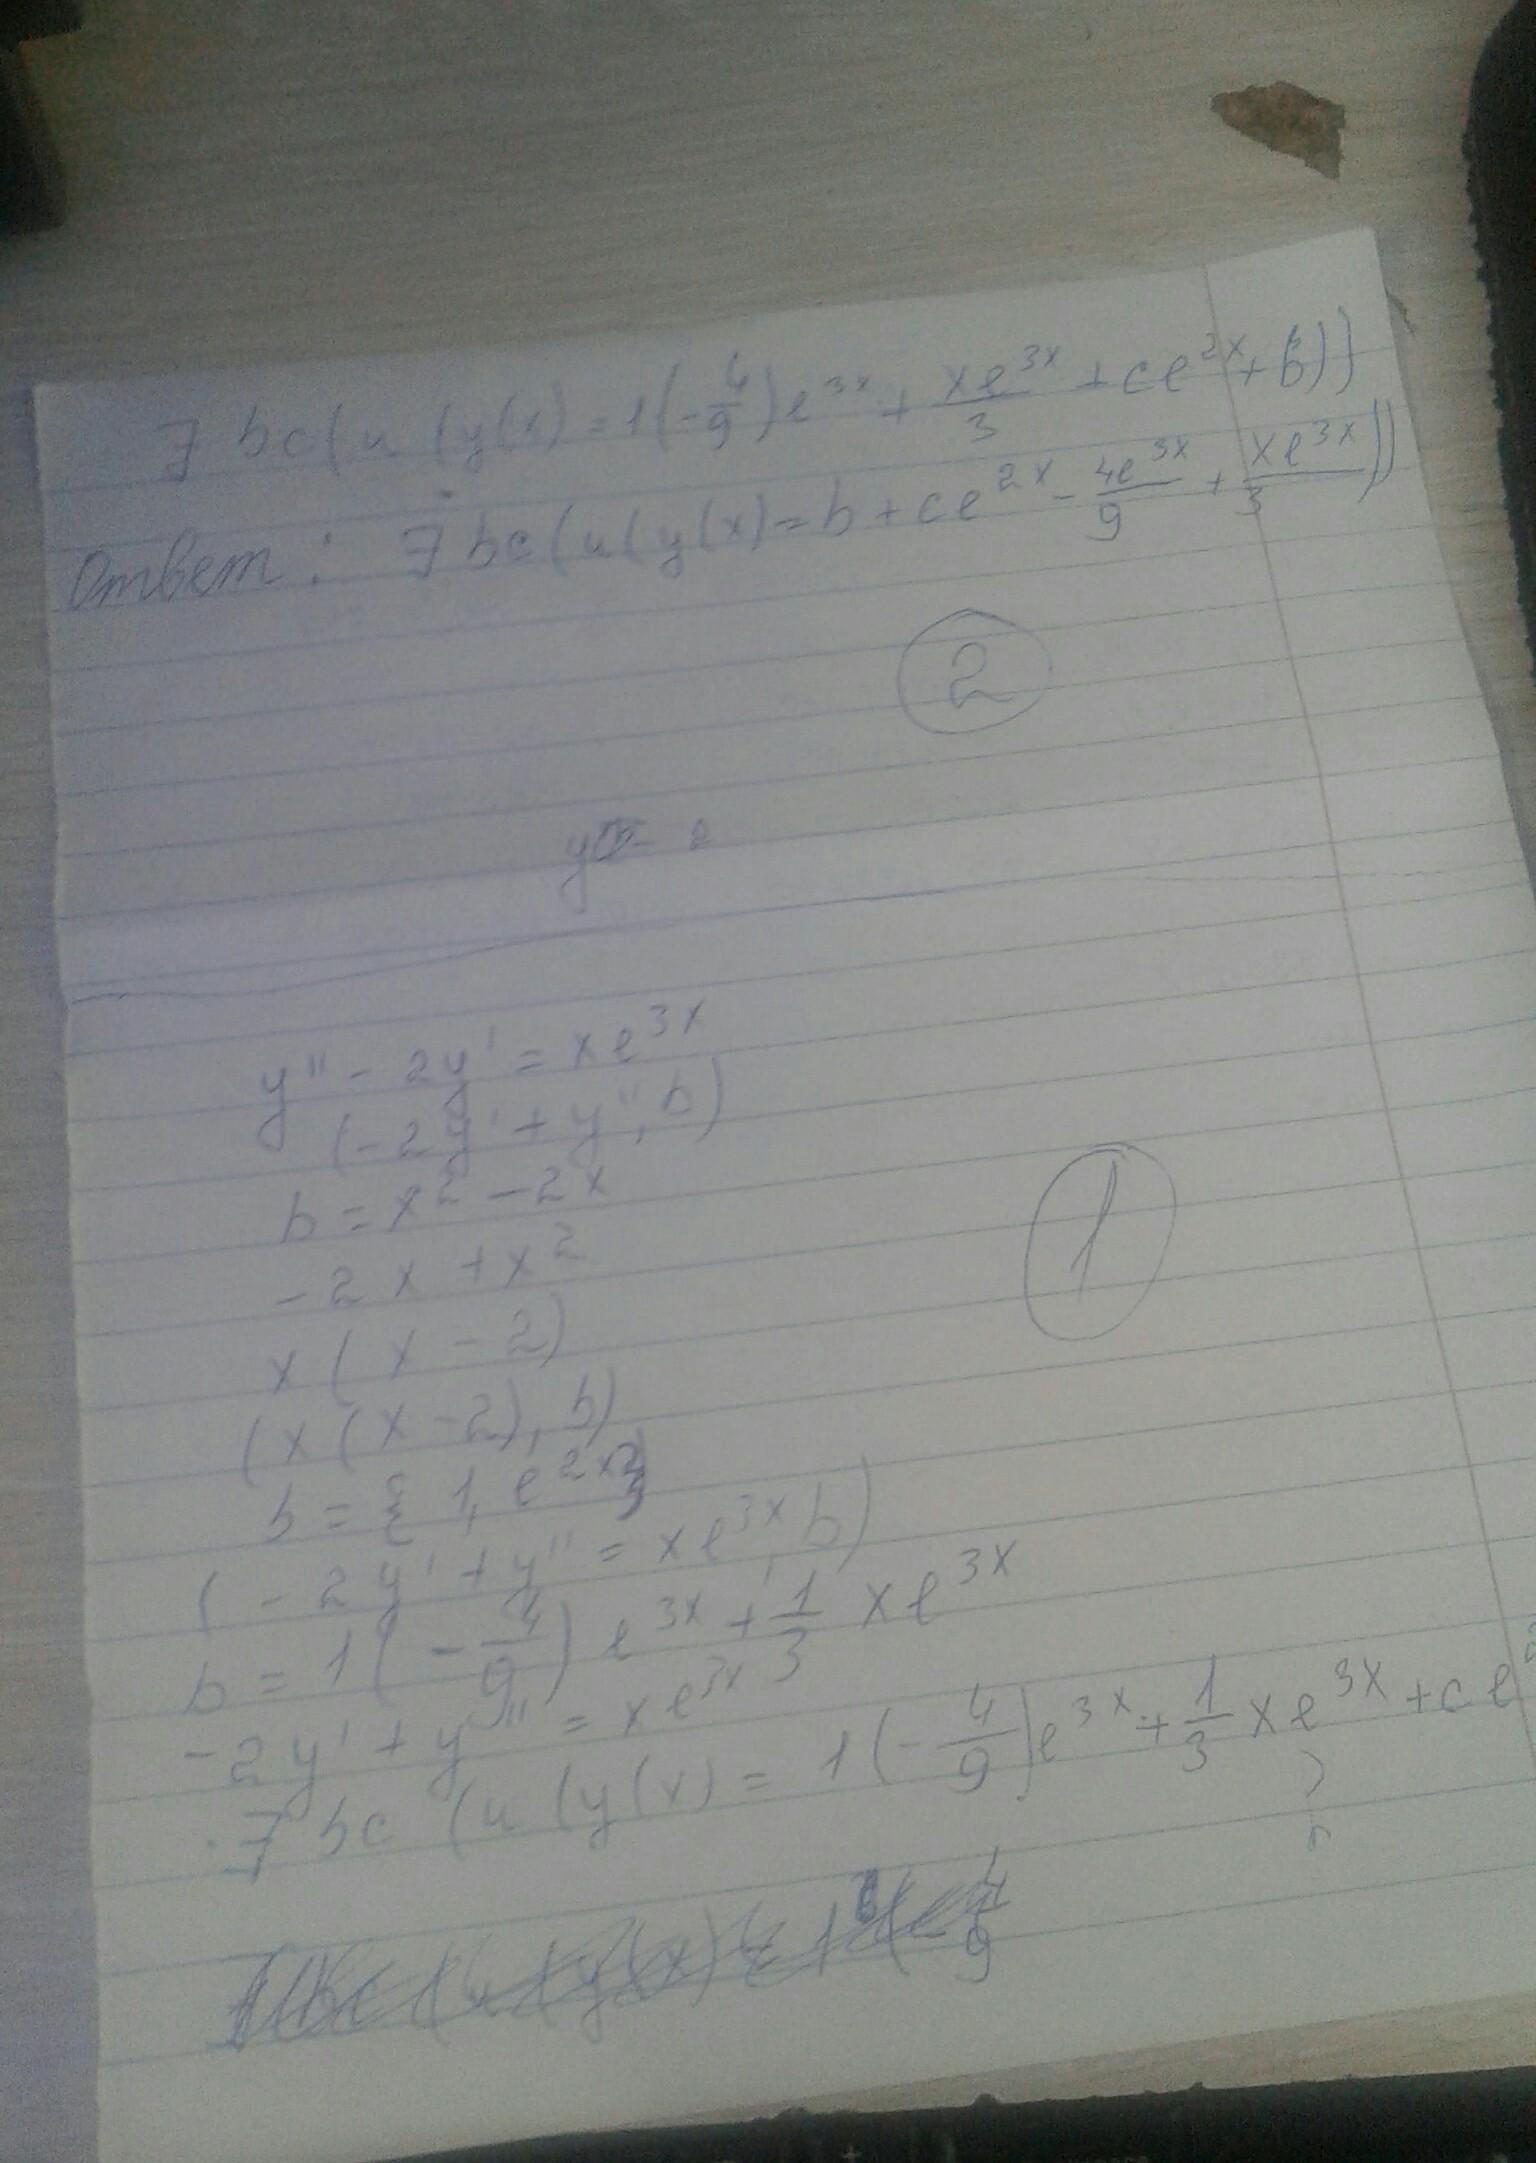 ∃ bc(u(y(x)=1(-4/9)e^3x + xe^3x/3 + ce^2x + b))
Ответ: ∃ bc(u(y(x)=b+ce^2x - 4e^3x/9 + xe^3x/3))
2
y'' - 2y' = xe^3x
(-2y' + y'', b)
b = x^2 - 2x
-2x + x^2
x(x - 2)
(x(x-2), b)
b = { 1, e^2x }
1
(-2y' + y'' = xe^3x, b)
b = 1(-4/9)e^3x + 1/3 xe^3x
-2y' + y'' = xe^3x
∃ bc (u(y(x) = 1(-4/9)e^3x + 1/3 xe^3x + ce